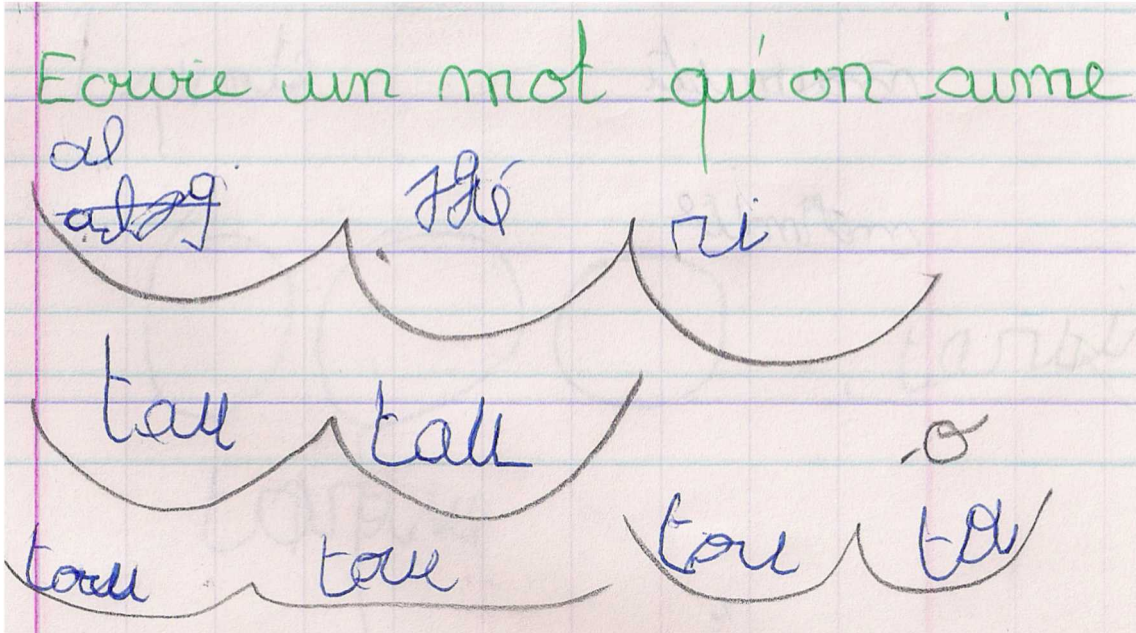 Ecrire un mot qu'on aime
al
ri
tau tau
o
tou tou tou